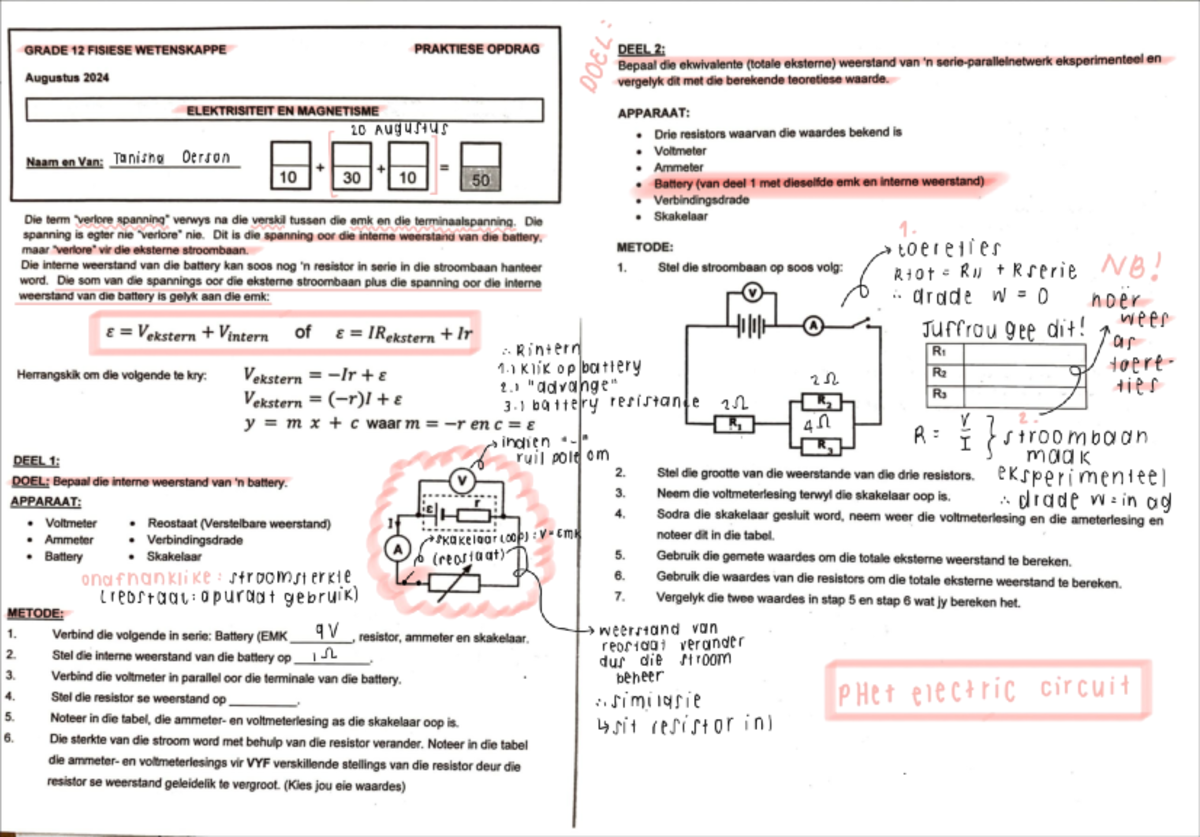 GRADE 12 FISIESE WETENSKAPPE PRAKTIESE OPDRAG
Augustus 2024
ELEKTRISITEIT EN MAGNETISME
20 Augustus
Naam en Van: Tanisha Oerson
10 + 30 + 10 = 50
Die term "verlore spanning" verwys na die verskil tussen die emk en die terminaalspanning. Die
spanning is egter nie "verlore" nie. Dit is die spanning oor die interne weerstand van die battery,
maar "verlore" vir die eksterne stroombaan.
Die interne weerstand van die battery kan soos nog 'n resistor in serie in die stroombaan hanteer
word. Die som van die spannings oor die eksterne stroombaan plus die spanning oor die interne
weerstand van die battery is gelyk aan die emk:
ε = Vekstern + Vintern of ε = IRekstern + Ir
Herrangskik om die volgende te kry:
Vekstern = −Ir + ε
Vekstern = (−r)I + ε
y = m x + c waar m = −r en c = ε
∴ Rintern
1.) klik op battery
2.) "advange"
3.) battery resistance
DEEL 1:
DOEL: Bepaal die interne weerstand van 'n battery.
APPARAAT:
• Voltmeter • Reostaat (Verstelbare weerstand)
• Ammeter • Verbindingsdrade
• Battery • Skakelaar
onafhanklike: stroomsterkte
(reostaat: apuraat gebruik)
indien "-"
ruil pole om
V
ε r
I
A
skakelaar (oop): V=emk
(reostaat)
METODE:
1. Verbind die volgende in serie: Battery (EMK 9V, resistor, ammeter en skakelaar.
2. Stel die interne weerstand van die battery op 1Ω.
3. Verbind die voltmeter in parallel oor die terminale van die battery.
4. Stel die resistor se weerstand op ________.
5. Noteer in die tabel, die ammeter- en voltmeterlesing as die skakelaar oop is.
6. Die sterkte van die stroom word met behulp van die resistor verander. Noteer in die tabel
die ammeter- en voltmeterlesings vir VYF verskillende stellings van die resistor deur die
resistor se weerstand geleidelik te vergroot. (Kies jou eie waardes)
weerstand van
reostaat verander
dus die stroom
beheer
∴ similasie
↳ sit resistor in)
DOEL:
DEEL 2:
Bepaal die ekwivalente (totale eksterne) weerstand van 'n serie-parallelnetwerk eksperimenteel en
vergelyk dit met die berekende teoretiese waarde.
APPARAAT:
• Drie resistors waarvan die waardes bekend is
• Voltmeter
• Ammeter
• Battery (van deel 1 met dieselfde emk en interne weerstand)
• Verbindingsdrade
• Skakelaar
METODE:
1. Stel die stroombaan op soos volg:
1.
toereties
Rtot = R// + Rserie
∴ drade W = 0
NB!
hoër
wees
as
toere-
ties
Juffrou gee dit!
R1
R2
R3
V
A
2Ω
R1
2Ω
R2
4Ω
R3
2.
R = V/I } stroombaan
maak
eksperimenteel
∴ drade W=in ag
2. Stel die grootte van die weerstande van die drie resistors.
3. Neem die voltmeterlesing terwyl die skakelaar oop is.
4. Sodra die skakelaar gesluit word, neem weer die voltmeterlesing en die ameterlesing en
noteer dit in die tabel.
5. Gebruik die gemete waardes om die totale eksterne weerstand te bereken.
6. Gebruik die waardes van die resistors om die totale eksterne weerstand te bereken.
7. Vergelyk die twee waardes in stap 5 en stap 6 wat jy bereken het.
PHet electric circuit